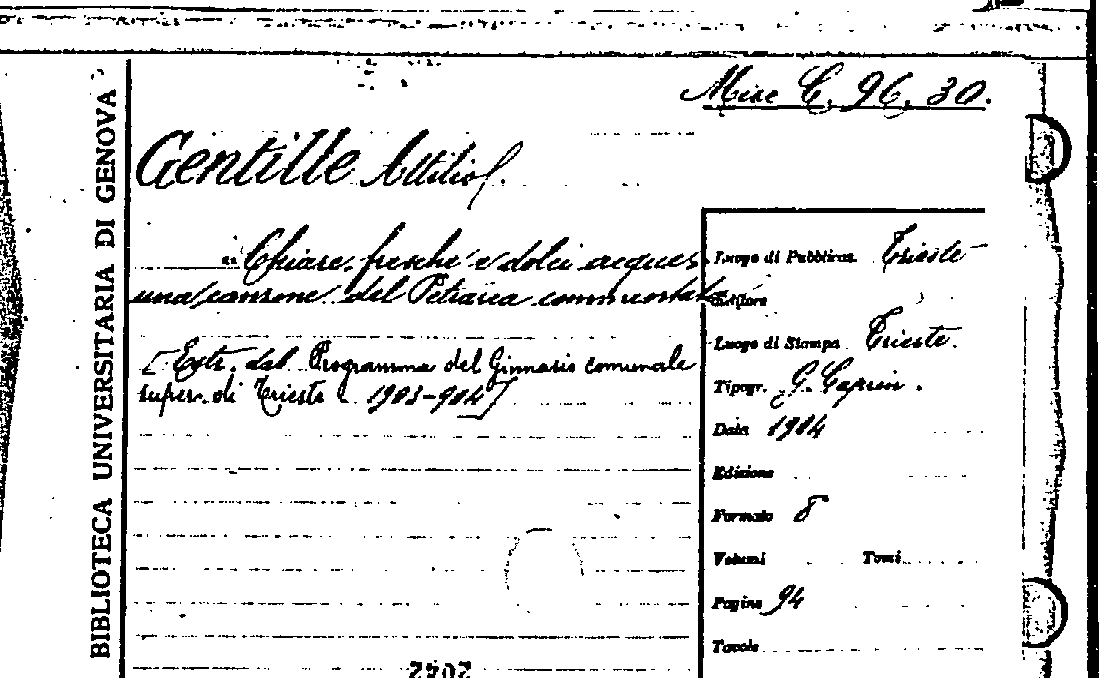 Misc C. 96. 30.
Gentille Attilio.
"Chiare, fresche e dolci acque"
una canzone del Petrarca commentata
[Estr. dal Programma del Ginnasio comunale
super. di Trieste 1903-904]
Luogo di Pubblicaz. Trieste
Editore
Luogo di Stampa Trieste.
Tipogr. G. Caprin.
Data 1904
Edizione
Formato 8
Volumi Tomi
Pagine 94
Tavole
BIBLIOTECA UNIVERSITARIA DI GENOVA